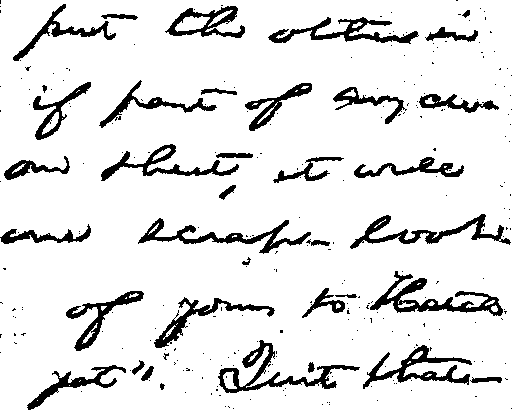 put the others in
if part of my own
on sheet, it will
our scrap-book
of yours to
yet". Quit that